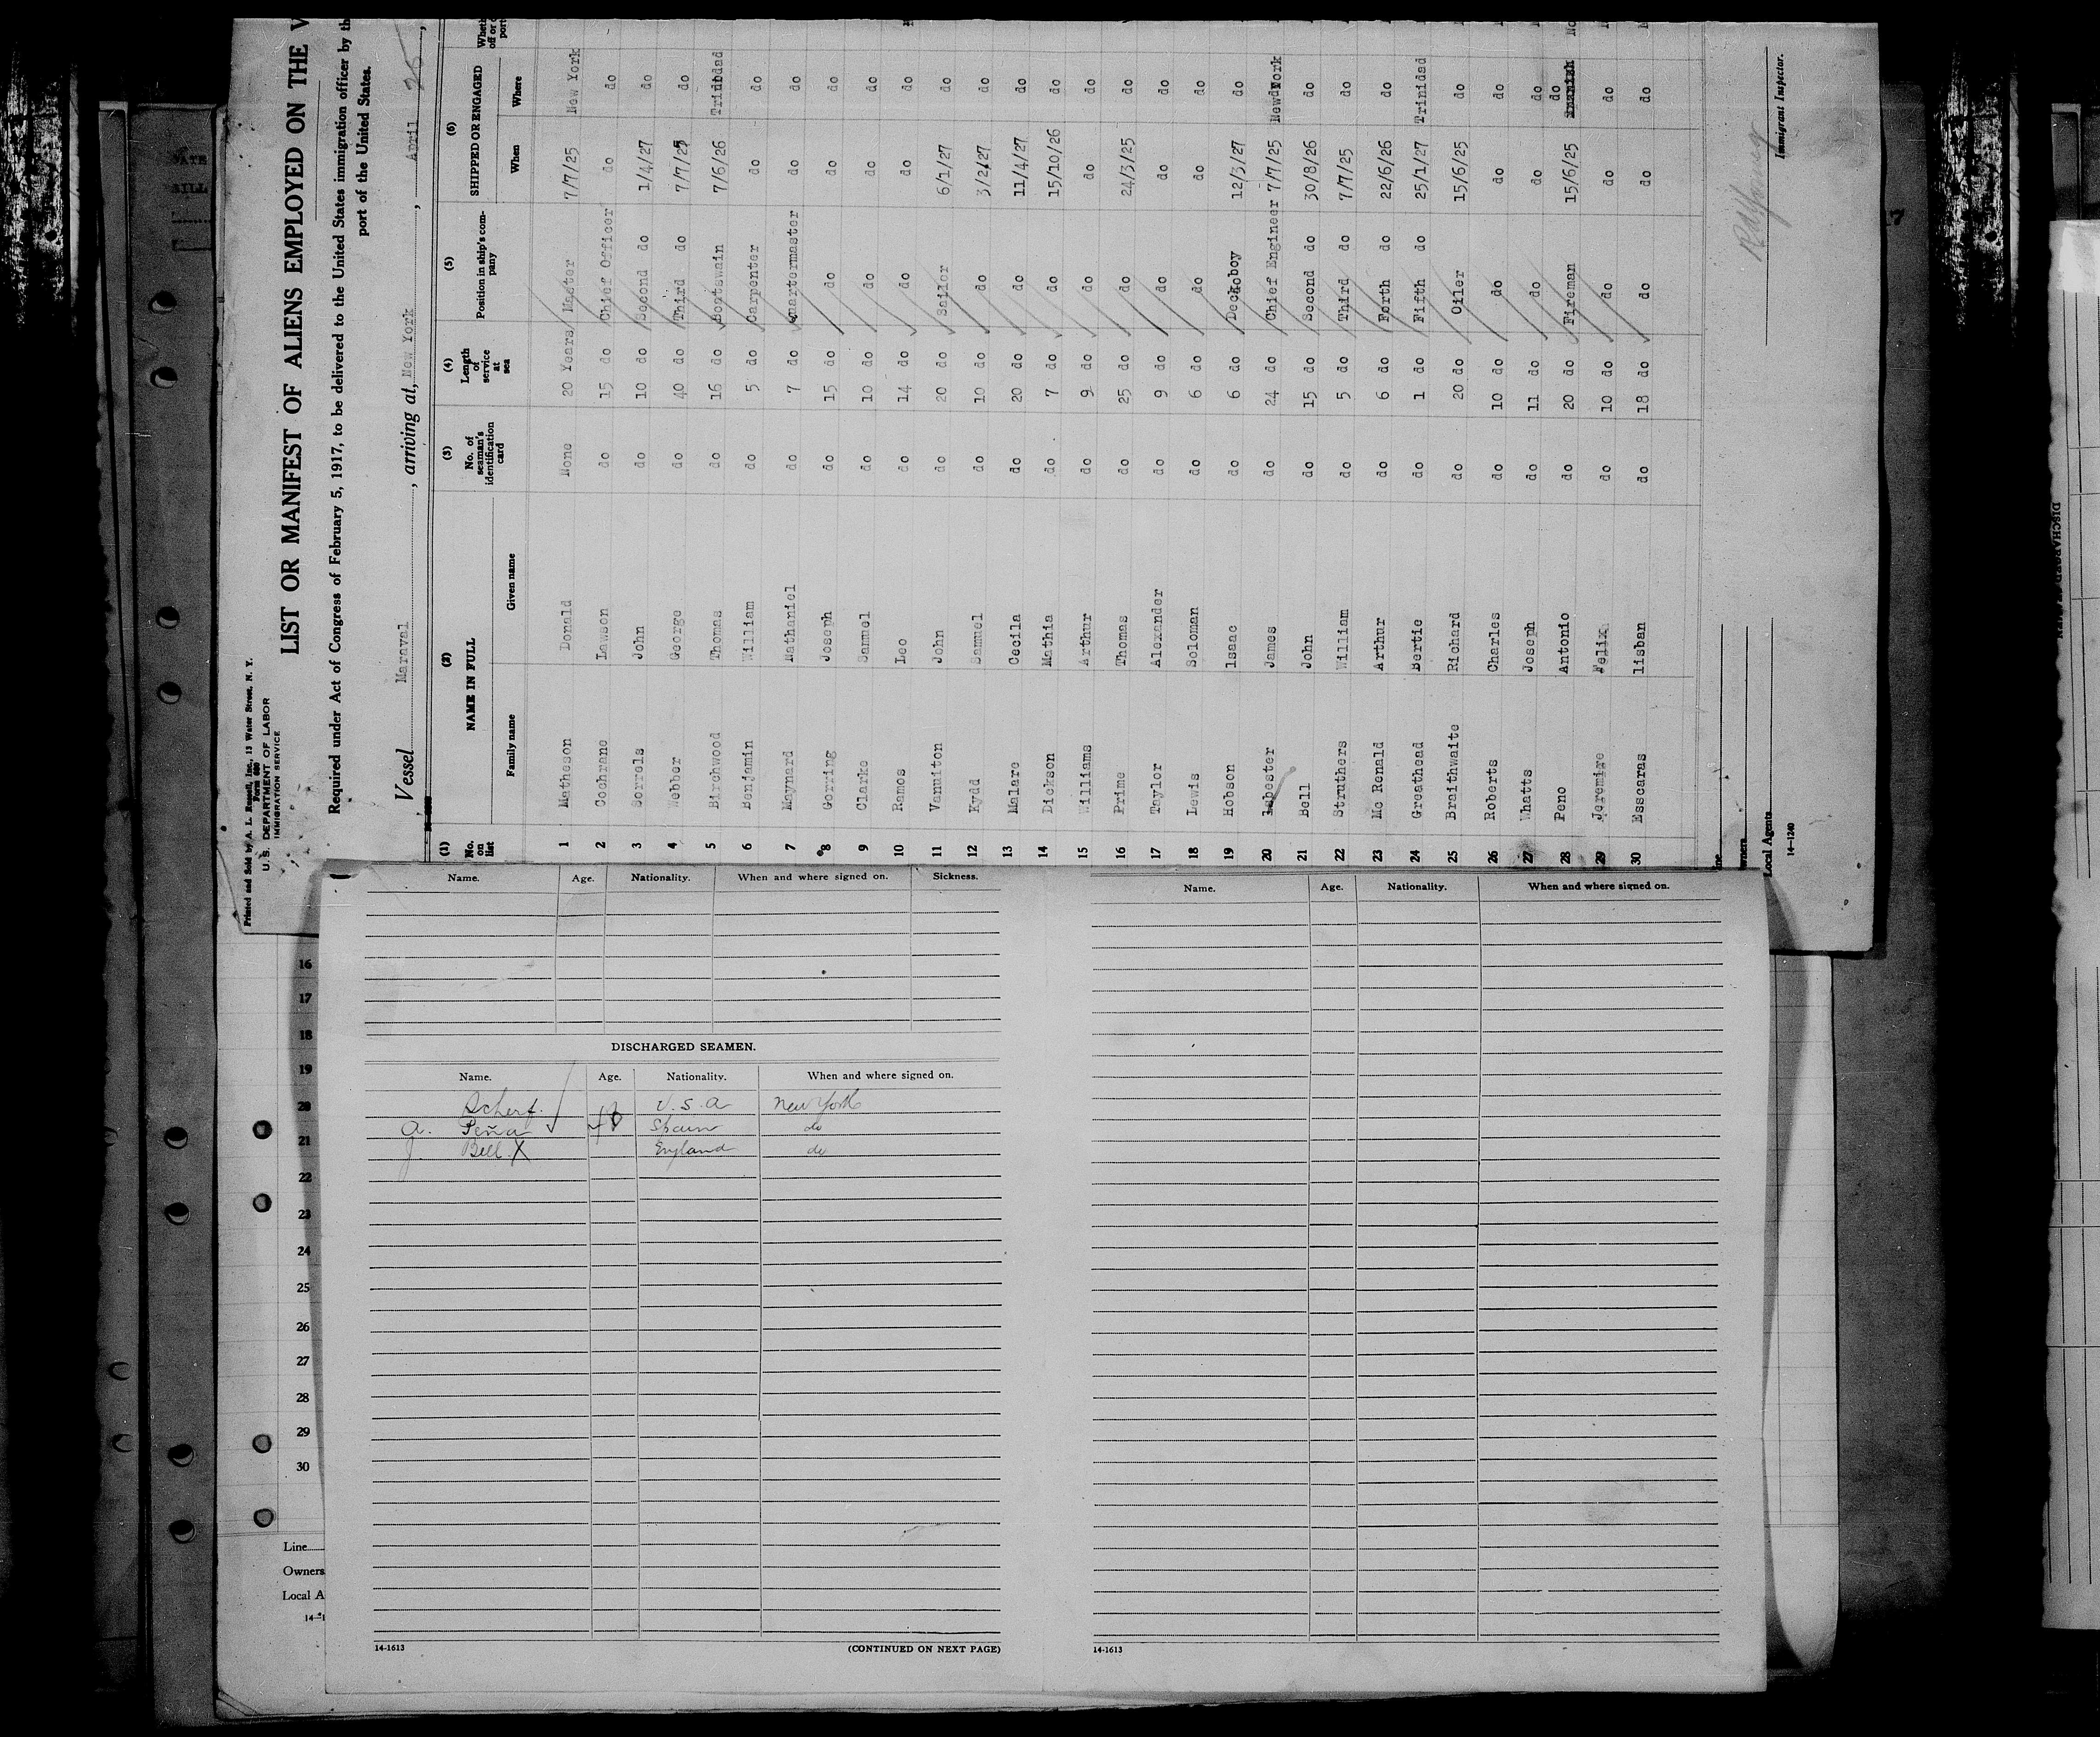 Printed and Sold by A. L. Russell, Inc., 13 Water Street, N. Y.
Form 680
U. S. DEPARTMENT OF LABOR
IMMIGRATION SERVICE
LIST OR MANIFEST OF ALIENS EMPLOYED ON THE V
Required under Act of Congress of February 5, 1917, to be delivered to the United States immigration officer by th
port of the United States.
Vessel Maraval, arriving at, New York, April 25,
(1) (2) (3) (4) (5) (6)
No. on list NAME IN FULL No. of seaman's identification card Length of service at sea Position in ship's company SHIPPED OR ENGAGED
Family name Given name When Where
1 Matheson Donald None 20 Years Master 7/7/25 New York
2 Cochrane Lawson do 15 do Chief Officer do do
3 Sorrels John do 10 do Second do 1/4/27 do
4 Webber George do 40 do Third do 7/7/25 do
5 Birchwood Thomas do 16 do Boatswain 7/6/26 Trinidad
6 Benjamin William do 5 do Carpenter do do
7 Maynard Nathaniel do 7 do Quartermaster do do
8 Gorring Joseph do 15 do do do do
9 Clarke Samuel do 10 do do do do
10 Ramos Leo do 14 do do do do
11 Vanuiton John do 20 do Sailor 6/1/27 do
12 Kydd Samuel do 10 do do 3/2/27 do
13 Malare Cecila do 20 do do 11/4/27 do
14 Dickson Mathia do 7 do do 15/10/26 do
15 Williams Arthur do 9 do do do do
16 Prime Thomas do 25 do do 24/3/25 do
17 Taylor Alexander do 9 do do do do
18 Lewis Soloman do 6 do do do do
19 Hobson Isaac do 6 do Deckboy 12/3/27 do
20 Isbester James do 24 do Chief Engineer 7/7/25 New York
21 Bell John do 15 do Second do 30/8/26 do
22 Struthers William do 5 do Third do 7/7/25 do
23 Mc Renald Arthur do 6 do Forth do 22/6/26 do
24 Greathead Bertie do 1 do Fifth do 25/1/27 Trinidad
25 Braithwaite Richard do 20 do Oiler 15/6/25 do
26 Roberts Charles do 10 do do do do
27 Whatts Joseph do 11 do do do do
28 Peno Antonio do 20 do Fireman 15/6/25 do
29 Jeremire Felix do 10 do do do do
30 Esscaras lisban do 18 do do do do
Immigrant Inspector.
Local Agents
14—1240
Name. Age. Nationality. When and where signed on. Sickness.
DISCHARGED SEAMEN.
Name. Age. Nationality. When and where signed on.
Scherf. U.S.A New York
A. Peña Spain do
J. Bell X England do
14-1613
(CONTINUED ON NEXT PAGE)
Name. Age. Nationality. When and where signed on.
14-1613
16
17
18
19
20
21
22
23
24
25
26
27
28
29
30
Line
Owners
Local A